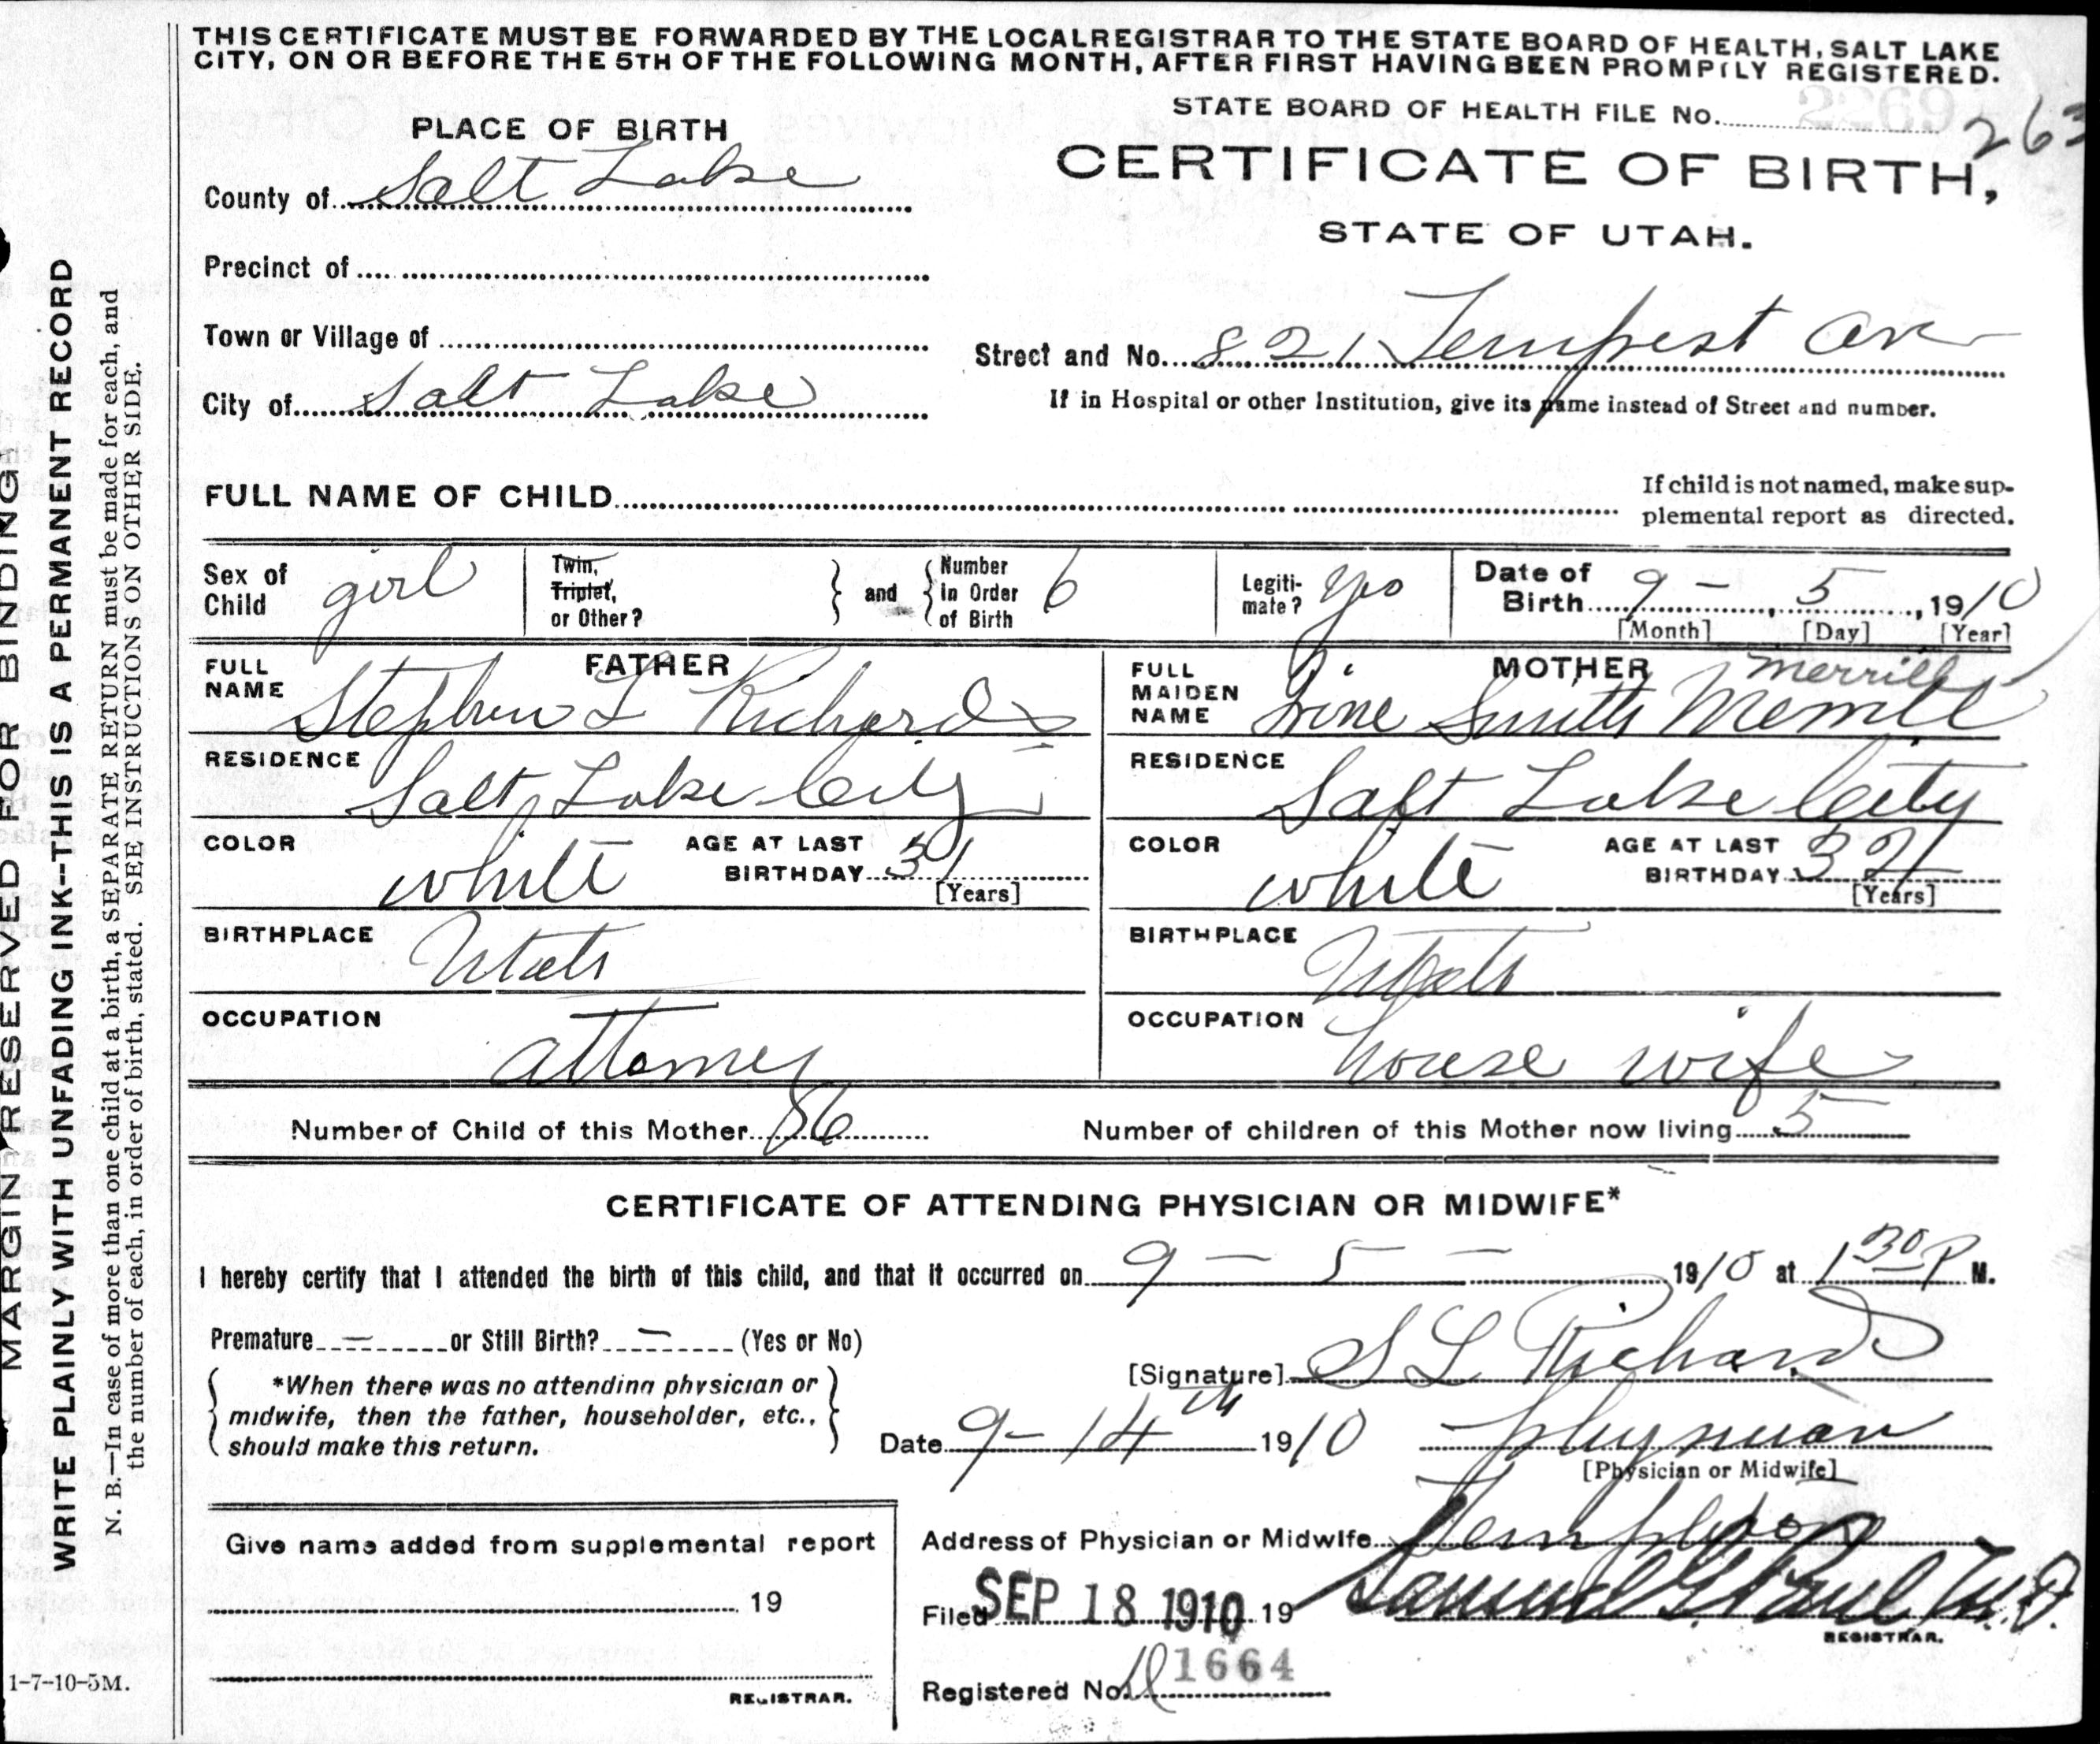 THIS CERTIFICATE MUST BE FORWARDED BY THE LOCAL REGISTRAR TO THE STATE BOARD OF HEALTH, SALT LAKE
CITY, ON OR BEFORE THE 5TH OF THE FOLLOWING MONTH, AFTER FIRST HAVING BEEN PROMPTLY REGISTERED.
STATE BOARD OF HEALTH FILE No. 2269
263
PLACE OF BIRTH
CERTIFICATE OF BIRTH,
STATE OF UTAH.
County of Salt Lake
Precinct of
Town or Village of
Street and No. 821 Tempest Ave
City of Salt Lake
If in Hospital or other Institution, give its name instead of Street and number.
FULL NAME OF CHILD
If child is not named, make sup-
plemental report as directed.
Sex of Child girl
Twin, Triplet, or Other?
and
Number in Order of Birth 6
Legiti-mate? Yes
Date of Birth 9 - 5, 1910
[Month] [Day] [Year]
FATHER
FULL NAME Stephen L Richards
RESIDENCE Salt Lake City
COLOR white
AGE AT LAST BIRTHDAY 31
[Years]
BIRTHPLACE Utah
OCCUPATION attorney
MOTHER
Merrill
FULL MAIDEN NAME Irine Smith Merrill
RESIDENCE Salt Lake City
COLOR white
AGE AT LAST BIRTHDAY
[Years]
BIRTHPLACE Utah
OCCUPATION house wife
Number of Child of this Mother 6
Number of children of this Mother now living 5
CERTIFICATE OF ATTENDING PHYSICIAN OR MIDWIFE*
I hereby certify that I attended the birth of this child, and that it occurred on 9 - 5 - 1910 at 1 30 P M.
Premature - or Still Birth? - (Yes or No)
*When there was no attending physician or
midwife, then the father, householder, etc.,
should make this return.
[Signature] S L Richards
Date 9-14th 1910 physician
[Physician or Midwife]
Address of Physician or Midwife Templeton
Filed SEP 18 1910 19 Samuel G. Paul M.D.
REGISTRAR.
Registered No. 1664
Give name added from supplemental report
19
REGISTRAR.
1-7-10-5M.
MARGIN RESERVED FOR BINDING
WRITE PLAINLY WITH UNFADING INK--THIS IS A PERMANENT RECORD
N. B.—In case of more than one child at a birth, a SEPARATE RETURN must be made for each, and
the number of each, in order of birth, stated. SEE INSTRUCTIONS ON OTHER SIDE.